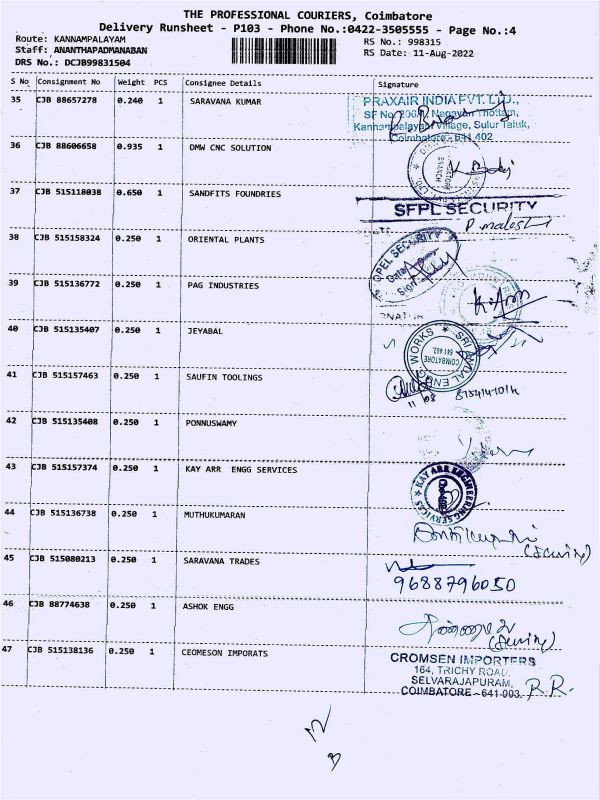 THE PROFESSIONAL COURIERS, Coimbatore
Delivery Runsheet - P103 - Phone No.:0422-3505555 - Page No.:4
Route: KANNAMPALAYAM
RS No.: 998315
Staff: ANANTHAPADMANABAN
RS Date: 11-Aug-2022
DRS No.: DCJB99831504
S No Consignment No Weight PCS Consignee Details Signature
35 CJB 88657278 0.240 1 SARAVANA KUMAR
PRAXAIR INDIA PVT. LTD.,
Kannampalayam Village, Sulur Taluk,
Coimbatore - 641 402
36 CJB 88606658 0.935 1 DMW CNC SOLUTION
37 CJB 515118038 0.650 1 SANDFITS FOUNDRIES
SFPL SECURITY
38 CJB 515158324 0.250 1 ORIENTAL PLANTS
OPEL SECURITY
39 CJB 515136772 0.250 1 PAG INDUSTRIES
40 CJB 515135407 0.250 1 JEYABAL
COIMBATORE
641 402
41 CJB 515157463 0.250 1 SAUFIN TOOLINGS
11/08
42 CJB 515135408 0.250 1 PONNUSWAMY
43 CJB 515157374 0.250 1 KAY ARR ENGG SERVICES
KAY ARR ENGINEERING SERVICES
44 CJB 515136738 0.250 1 MUTHUKUMARAN
45 CJB 515080213 0.250 1 SARAVANA TRADES
9688796050
46 CJB 88774638 0.250 1 ASHOK ENGG
47 CJB 515138136 0.250 1 CEOMESON IMPORATS
CROMSEN IMPORTERS
164, TRICHY ROAD,
SELVARAJAPURAM,
COIMBATORE - 641 003. R.R.